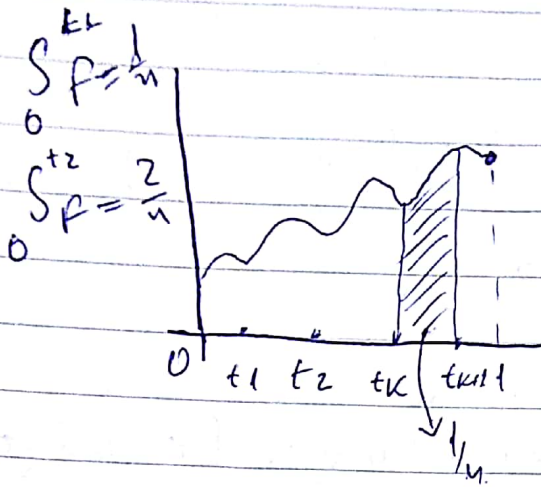 ∫₀^{t1} f = 1/n
∫₀^{t2} f = 2/n
0 t1 t2 tk tk+1 1
1/n